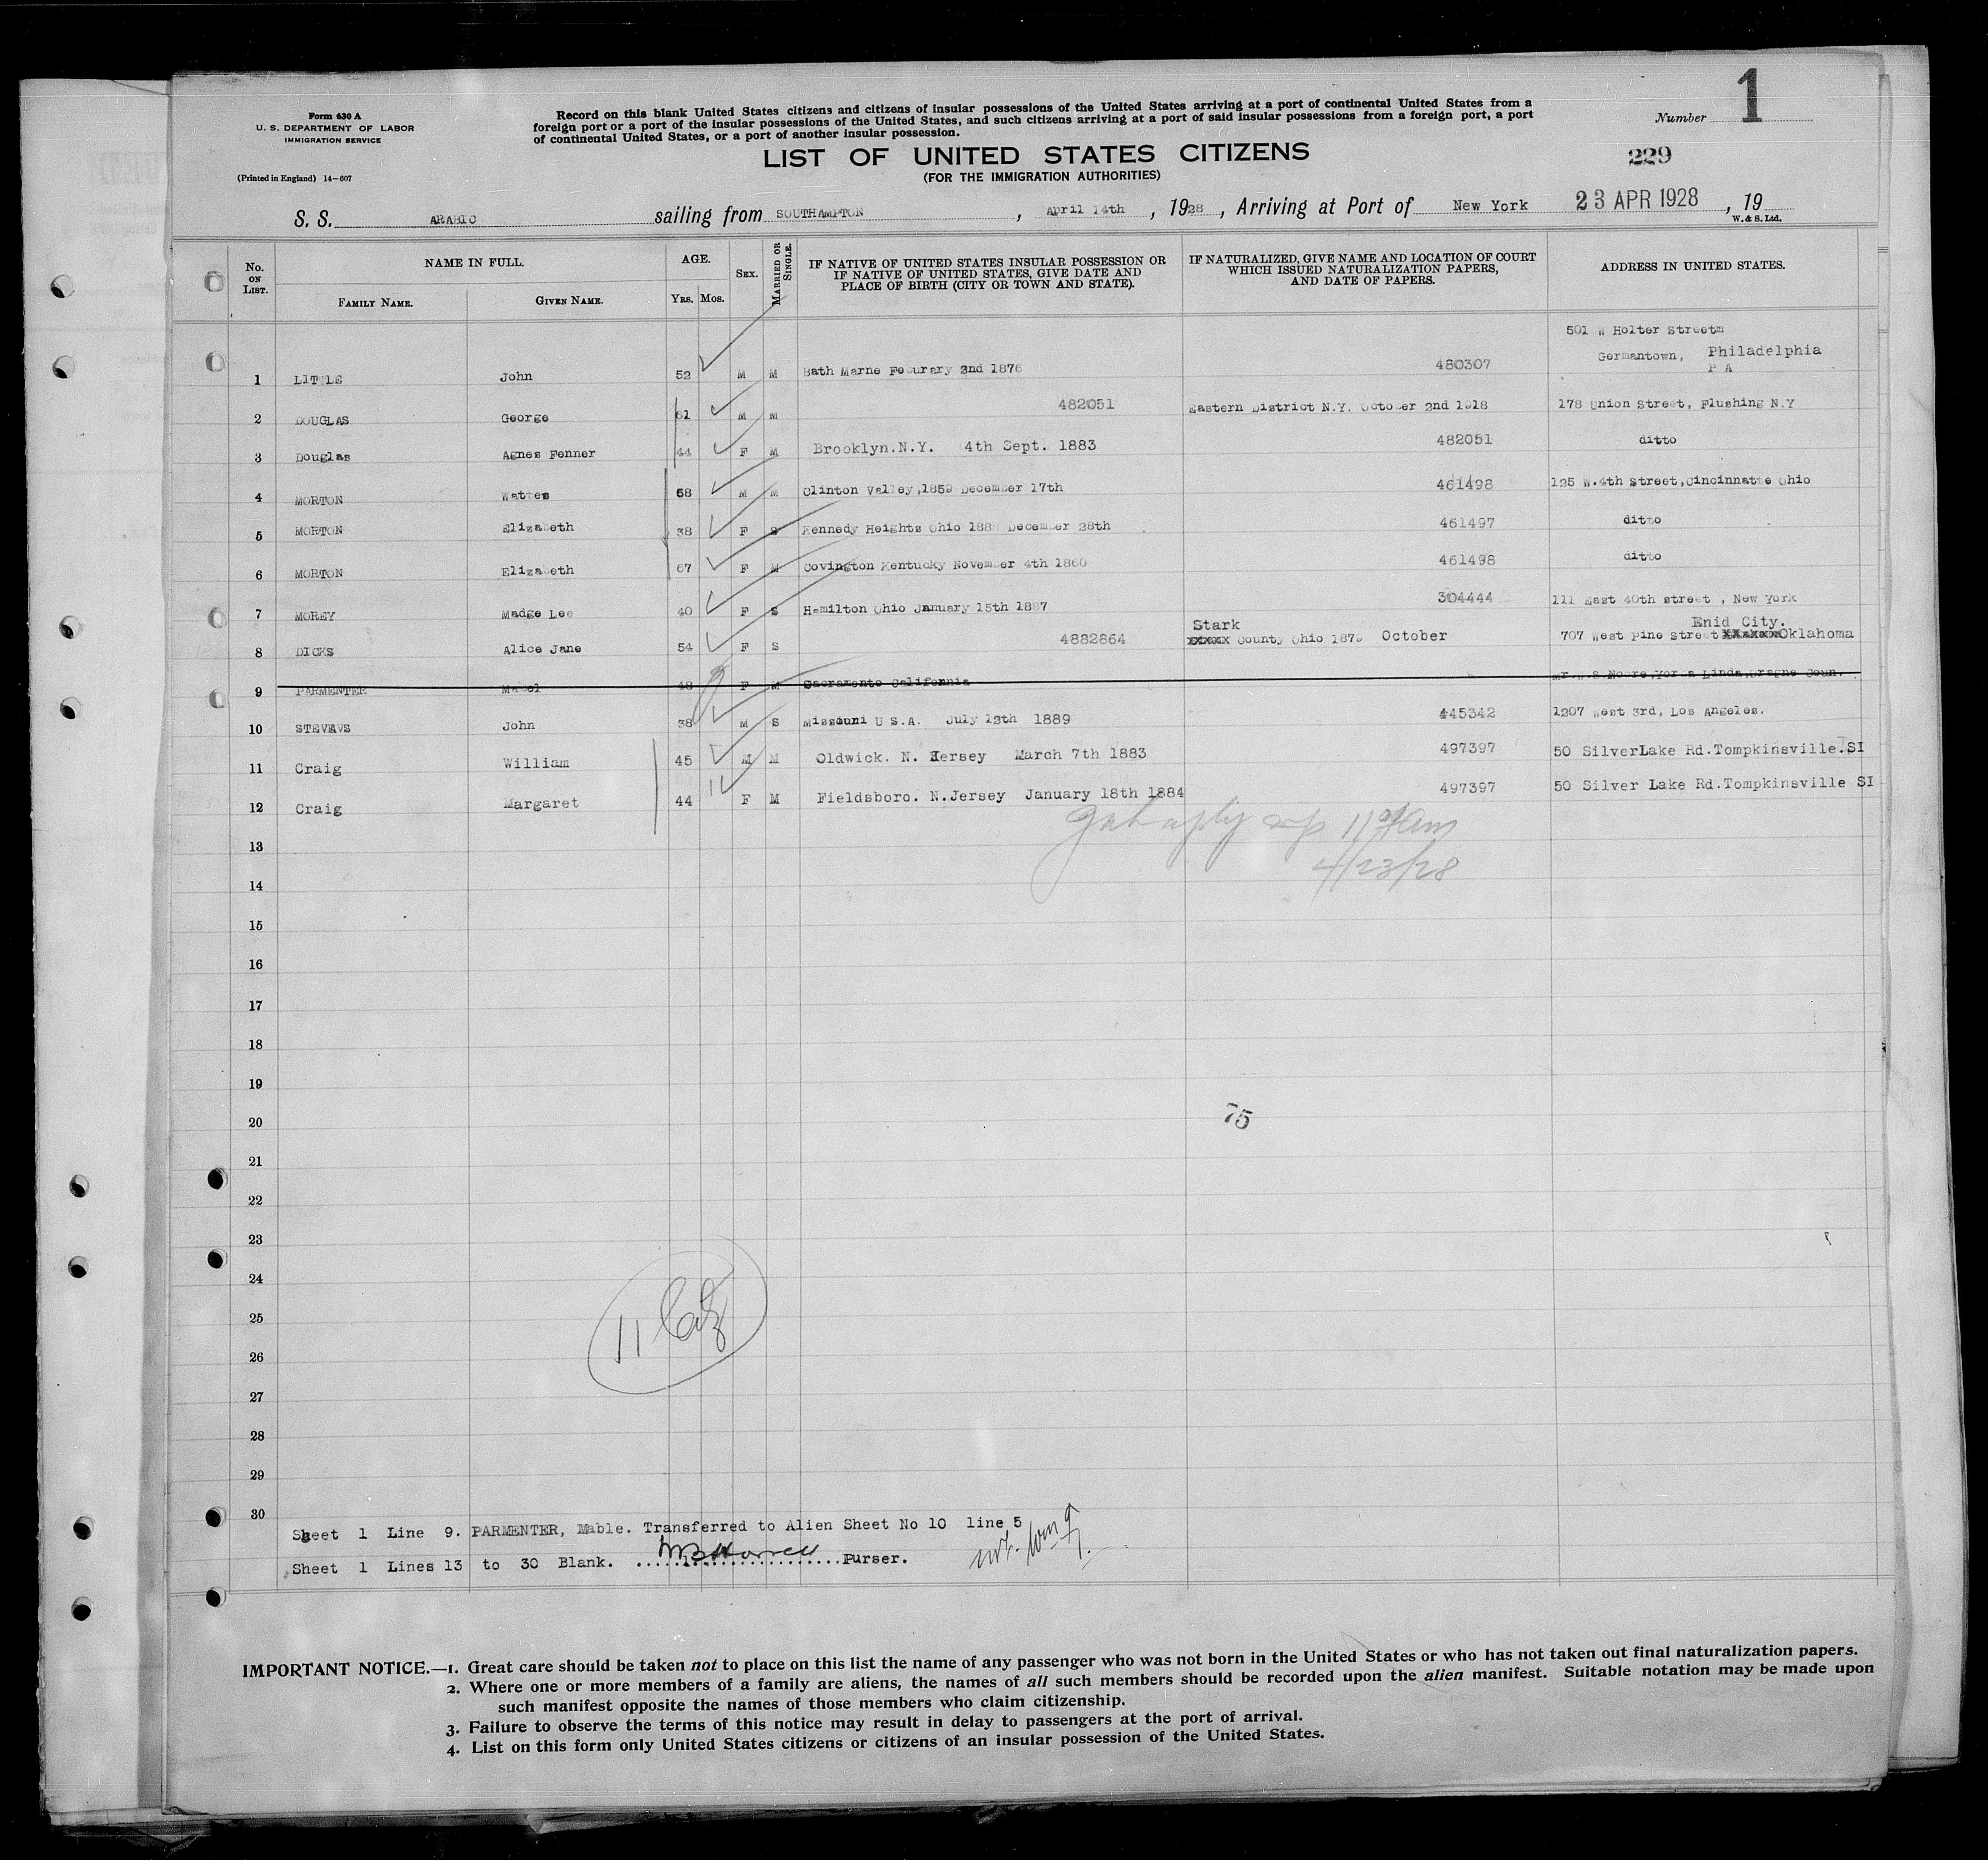 1
Form 630 A
U. S. DEPARTMENT OF LABOR
IMMIGRATION SERVICE
(Printed in England) 14—607
Record on this blank United States citizens and citizens of insular possessions of the United States arriving at a port of continental United States from a
foreign port or a port of the insular possessions of the United States, and such citizens arriving at a port of said insular possessions from a foreign port, a port
of continental United States, or a port of another insular possession.
Number
LIST OF UNITED STATES CITIZENS
(FOR THE IMMIGRATION AUTHORITIES)
229
S. S. ARABIC sailing from SOUTHAMPTON, April 14th, 1928, Arriving at Port of New York 23 APR 1928, 19
W. & S. Ltd.
No. ON LIST. NAME IN FULL. AGE. SEX. MARRIED OR SINGLE. IF NATIVE OF UNITED STATES INSULAR POSSESSION OR IF NATIVE OF UNITED STATES, GIVE DATE AND PLACE OF BIRTH (CITY OR TOWN AND STATE). IF NATURALIZED, GIVE NAME AND LOCATION OF COURT WHICH ISSUED NATURALIZATION PAPERS, AND DATE OF PAPERS. ADDRESS IN UNITED STATES.
FAMILY NAME. GIVEN NAME. YRS. MOS.
501 W Holter Streetm
Germantown, Philadelphia
P A
1 LITTLE John 52 M M Bath Marne Fecurary 2nd 1876 480307
2 DOUGLAS George 61 M M 482051 Eastern District N.Y. October 2nd 1918 178 Union Street, Flushing N.Y
3 Douglas Agnes Fenner 44 F M Brooklyn.N.Y. 4th Sept. 1883 482051 ditto
4 MORTON Wattes 68 M M Clinton Valley,1859 December 17th 461498 125 W.4th Street,Cincinnatte Ohio
5 MORTON Elizabeth 38 F S Kennedy Heights Ohio 1889 December 28th 461497 ditto
6 MORTON Elizabeth 67 F M Covington Kentucky November 4th 1860 461498 ditto
7 MOREY Madge Lee 40 F S Hamilton Ohio January 15th 1887 304444 111 East 40th street , New York
Stark Enid City.
8 DICKS Alice Jane 54 F S 4882864 xxxxx County Ohio 1879 October 707 West Pine Street xxxxxxx Oklahoma
9 PARMENTER Mabel 48 F M Sacramento California
10 STEVEVS John 38 M S Missouni U S.A. July 12th 1889 445342 1207 West 3rd, Los Angeles.
11 Craig William 45 M M Oldwick. N. Jersey March 7th 1883 497397 50 SilverLake Rd.Tompkinsville.SI
12 Craig Margaret 44 F M Fieldsboro. N.Jersey January 18th 1884 497397 50 Silver Lake Rd.Tompkinsville SI
13
4/23/28
14
15
16
17
18
19
20
75
21
22
23
24
25
11
26
27
28
29
30
Sheet 1 Line 9. PARMENTER, Mable. Transferred to Alien Sheet No 10 line 5
Sheet 1 Lines 13 to 30 Blank. ........................Purser.
IMPORTANT NOTICE.—1. Great care should be taken not to place on this list the name of any passenger who was not born in the United States or who has not taken out final naturalization papers.
2. Where one or more members of a family are aliens, the names of all such members should be recorded upon the alien manifest. Suitable notation may be made upon
such manifest opposite the names of those members who claim citizenship.
3. Failure to observe the terms of this notice may result in delay to passengers at the port of arrival.
4. List on this form only United States citizens or citizens of an insular possession of the United States.